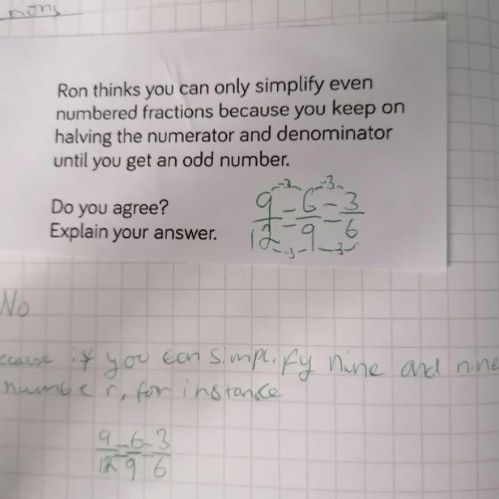 Ron thinks you can only simplify even
numbered fractions because you keep on
halving the numerator and denominator
until you get an odd number.
Do you agree?
Explain your answer.
-3 -3
9/12 = 6/9 = 3/6
-3 -3
No
ecause if you can simplify nine and nine
number, for instance
9/12 = 6/9 = 3/6